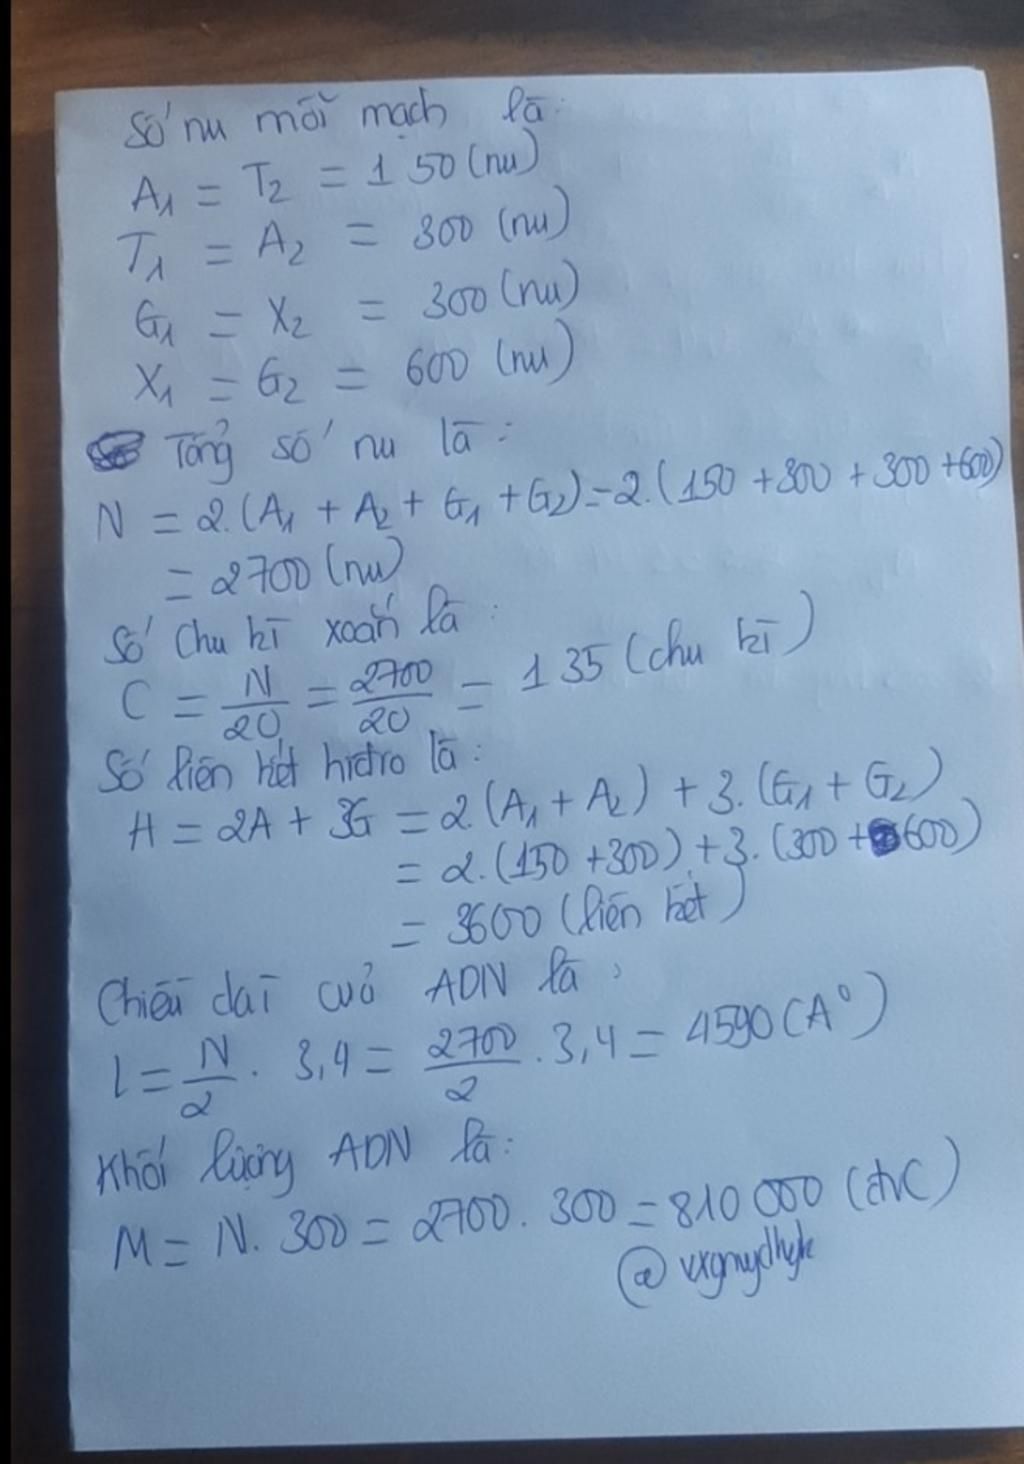 Số nu mỗi mạch là:
A₁ = T₂ = 150 (nu)
T₁ = A₂ = 300 (nu)
G₁ = X₂ = 300 (nu)
X₁ = G₂ = 600 (nu)
Tổng số nu là:
N = 2.(A₁ + A₂ + G₁ + G₂) = 2.(150 + 300 + 300 + 600)
= 2700 (nu)
Số chu kì xoắn là:
C = N/20 = 2700/20 = 135 (chu kì)
Số liên kết hidro là:
H = 2A + 3G = 2.(A₁ + A₂) + 3.(G₁ + G₂)
= 2.(150 + 300) + 3.(300 + 600)
= 3600 (liên kết)
Chiều dài của ADN là:
l = N/2 . 3,4 = 2700/2 . 3,4 = 4590 (A⁰)
Khối lượng ADN là:
M = N. 300 = 2700. 300 = 810 000 (đvC)